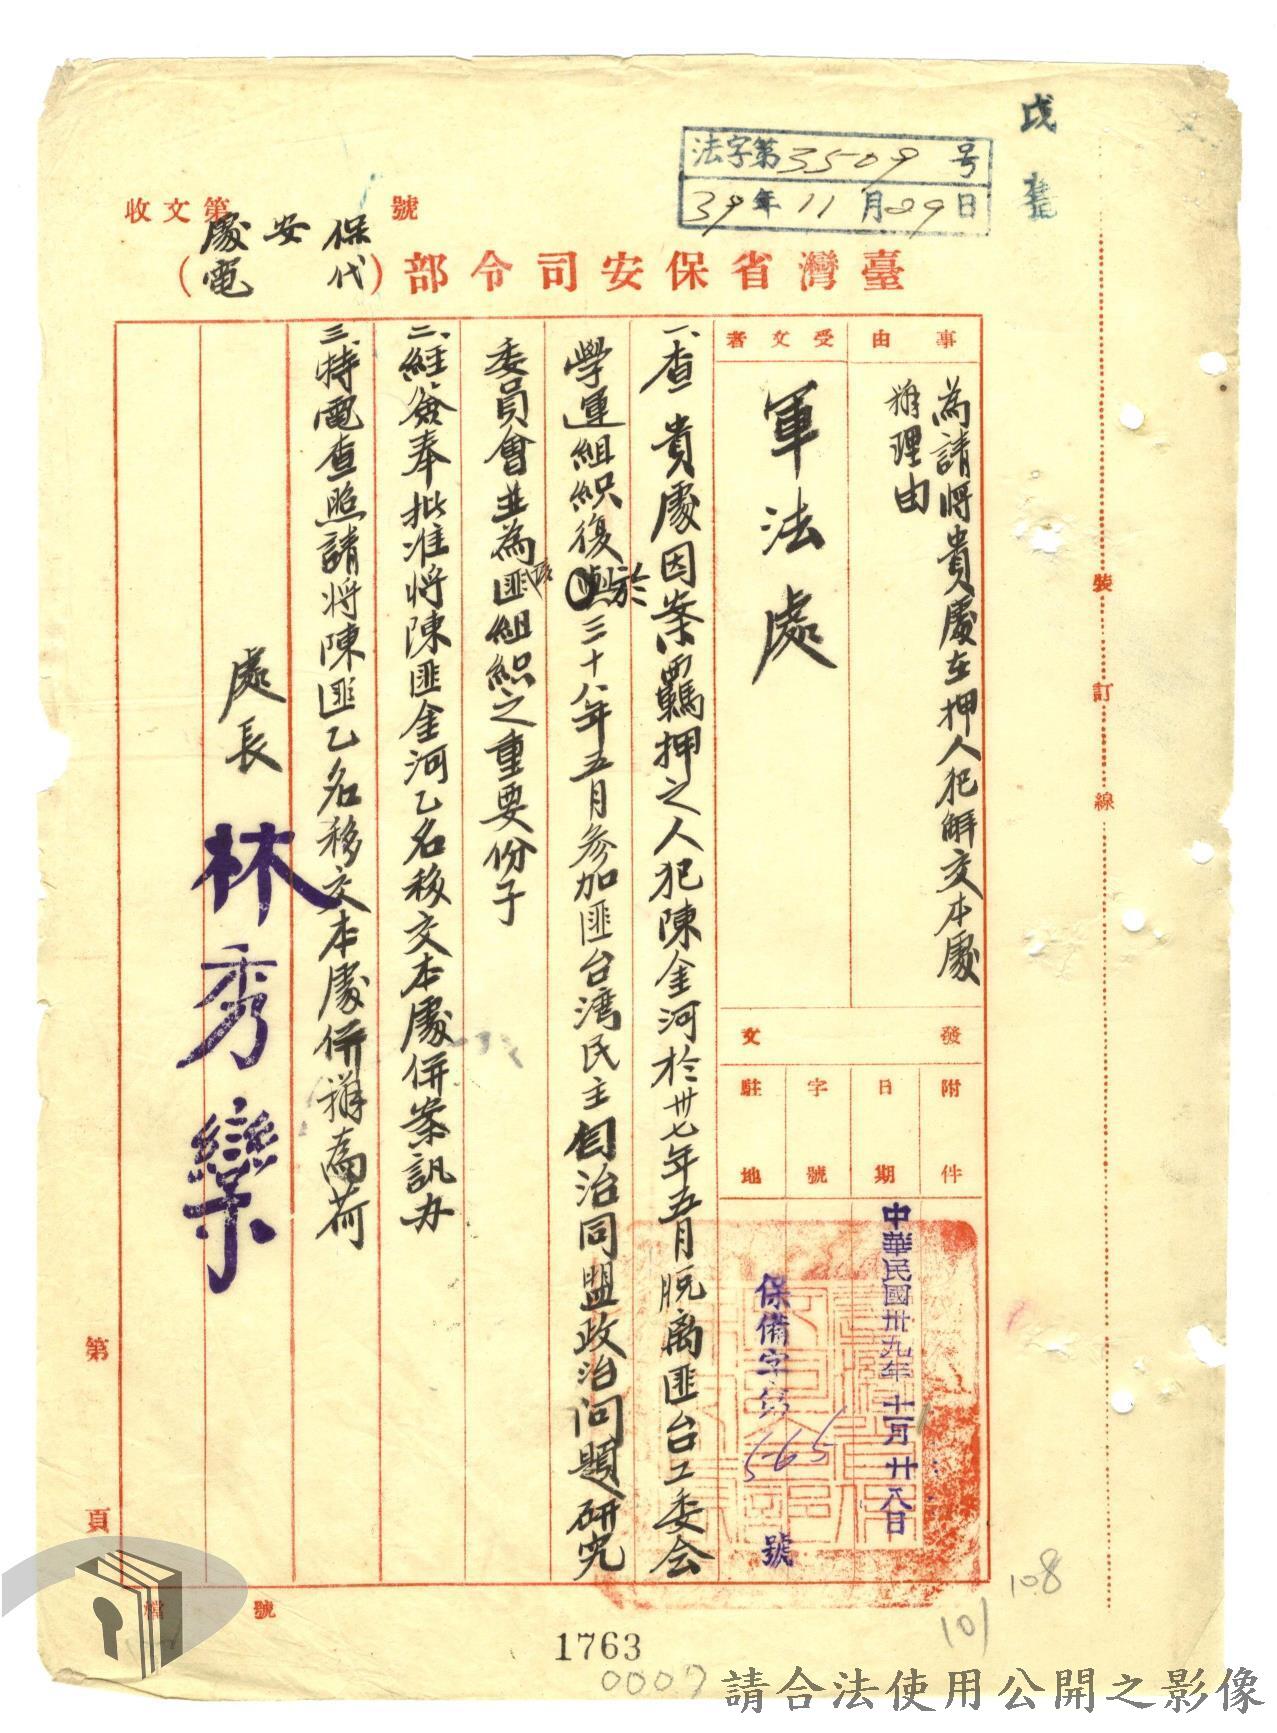 法字第3509号
39年11月29日
收文第 號
臺灣省保安司令部(保安處代電)
事由
為請將貴處在押人犯解交本處
辦理由
受文者
軍法處
發文
附件
日期
字號
駐地
中華民國卅九年十一月廿八日
保備字第565號
一、查貴處因案羈押之人犯陳金河於卅七年五月脫离匪台工委会
學運組織復於三十八年五月參加匪台湾民主自治同盟政治问題研究
委員會並為匪該組織之重要份子
二、經簽奉批准將陳匪金河乙名移交本處併案訊办
三、特電查照請將陳匪乙名移交本處併辦為荷
處長 林秀欒
裝訂線
第 頁
檔號
108
101
1763
0007
請合法使用公開之影像